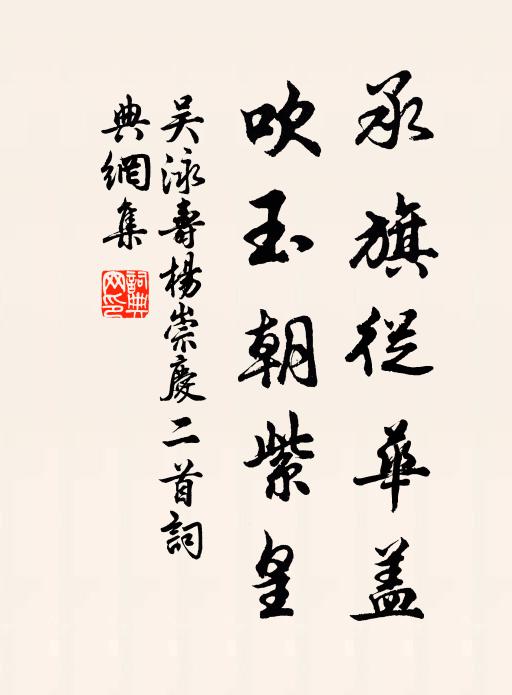 承旗從華盖
吹玉朝紫皇
吴泳壽楊崇慶二首詞
典網集
詞典網印